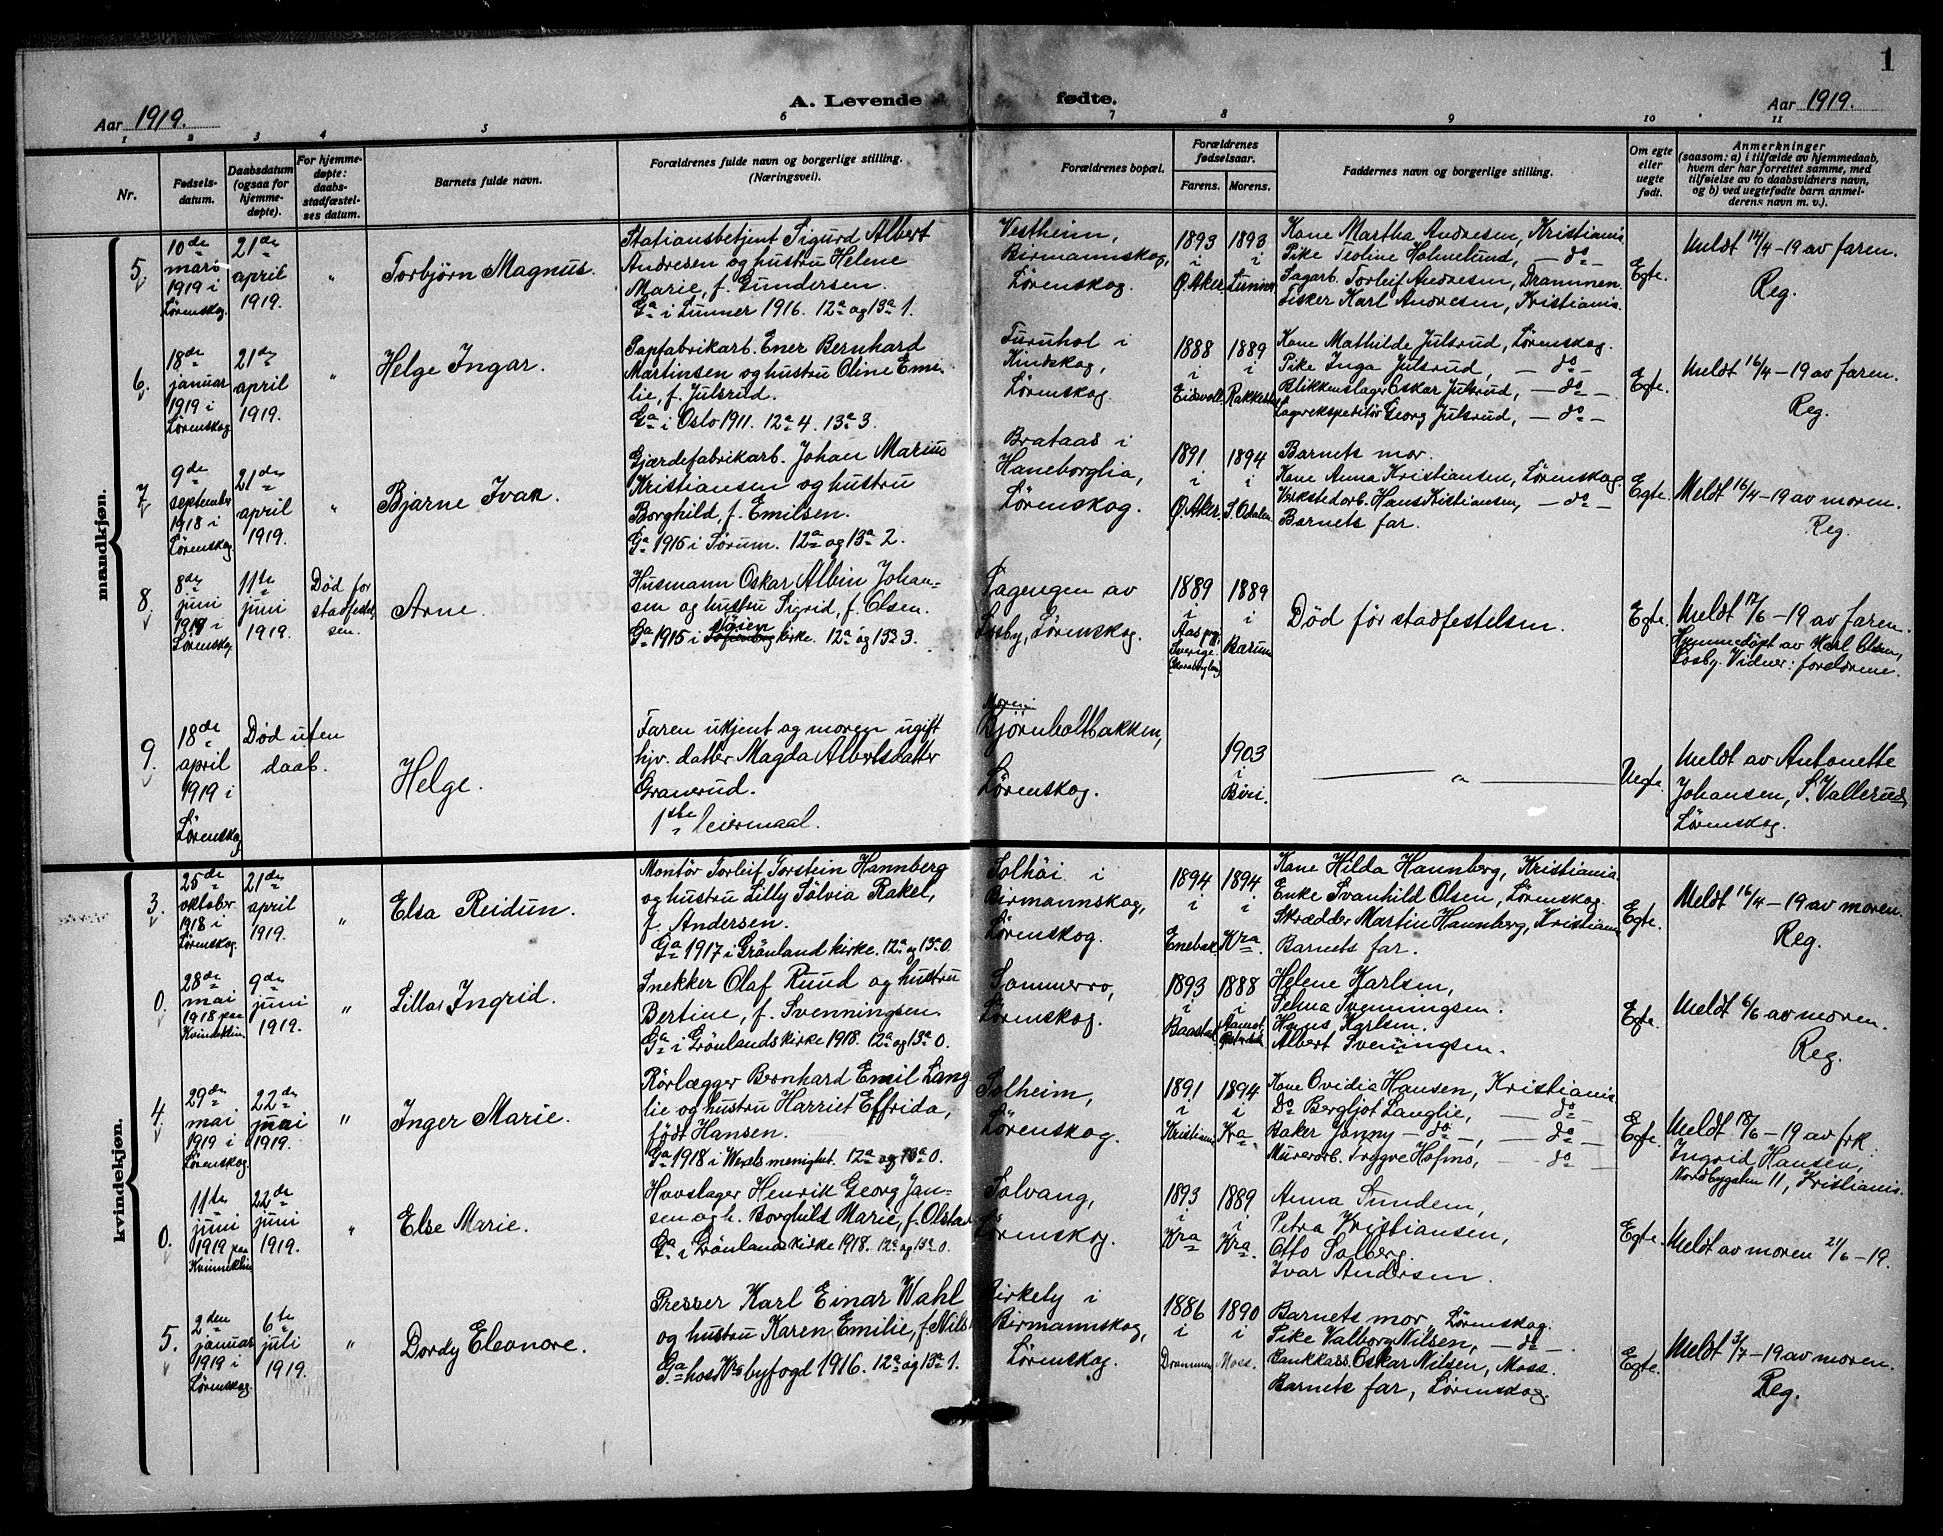 1
A. Levende fødte.
Aar 1919.
Aar 1919.
1 2 3 4 5 6 7 8 9 10 11
Nr.
Fødsels-
datum.
Daabsdatum
(ogsaa for
hjemme-
døpte).
For hjemme-
døpte:
daabs-
stadfæstel-
ses datum.
Barnets fulde navn.
Forældrenes fulde navn og borgerlige stilling.
(Næringsvei).
Forældrenes bopæl.
Forældrenes
fødselsaar.
Farens. Morens.
Faddernes navn og borgerlige stilling.
Om egte
eller
uegte
født.
Anmerkninger
(saasom: a) i tilfælde av hjemmedaab,
hvem der har forrettet samme, med
tilføielse av to daabsvidners navn,
og b) ved uegtefødte barn anmel-
derens navn m. v.).
mandkjøn.
5.
10de
mars
1919 i
Lørenskog.
21de
april
1919.
"
Torbjørn Magnus.
Stationsbetjent Sigurd Albert
Andresen og hustru Helene
Marie, f. Gundersen.
Ga i Lunner 1916. 12a og 13a 1.
Vestheim,
Birmannskog,
Lørenskog.
1893
i
Ø. Aker.
1893
i
Lunner
Kone Martha Andresen, Kristiania
Pike Teoline Holmelund, — do —
Sagarb. Torleif Andresen, Drammen.
Fisker Karl Andresen, Kristiania.
Egte.
Meldt 14/4 - 19 av faren.
Reg.
6.
18de
januar
1919 i
Lørenskog
21de
april
1919.
"
Helge Ingar.
Papfabrikarb. Ener Bernhard
Martinsen og hustru Oline Emi-
lie, f. Julsrud.
Ga i Oslo 1911. 12a 4. 13a 3.
Furuhol i
Kindskog,
Lørenskog.
1888
i
Eidsvoll
1889
i
Rakkestad
Kone Mathilde Julsrud, Lørenskog.
Pike Inga Julsrud, — do —
Blikkenslager Oskar Julsrud, — do —
Lagerekspeditør Georg Julsrud, — do —
Egte.
Meldt 16/4 - 19 av faren.
Reg.
7.
9de
september
1918 i
Lørenskog
21de
april
1919.
"
Bjarne Ivar.
Gjærdefabrikarb. Johan Marius
Kristiansen og hustru
Borghild, f. Emilsen.
Ga 1915 i Sørum. 12a og 13a 2.
Brataas i
Haneborglia,
Lørenskog.
1891
i
Ø. Aker.
1894
i
S. Odalen
Barnets mor.
Kone Anna Kristiansen, Lørenskog.
Verkstedarb. Hans Kristiansen, — do —
Barnets far.
Egte.
Meldt 16/4 - 19 av moren.
Reg.
8.
8de
juni
1919 i
Lørenskog.
11te
juni
1919.
Død for
stadfestel-
sen.
Arne.
Husmann Oskar Albin Johan-
sen og hustru Sigrid, f. Olsen.
Ga 1915 i kirke. 12a og 13a 3.
Sagengen av
Losby, Lørenskog.
1889
i
Sverige
1889
i
Bærum
Død før stadfestelsen.
Egte.
Meldt 17/6 - 19 av faren.
Hjemmedøpt av Karl Olsen,
Losby. Vidner: forældrene
9.
18de
april
1919 i
Lørenskog
Død uten
daab.
Helge.
Faren ukjent og moren ugift
hjv. datter Magda Albertsdatter
Granerud.
1ste leiermaal.
Moren:
Bjørnholtbakken,
Lørenskog.
1903
i
Biri.
— " —
Uegte.
Meldt av Antonette
Johansen, S. Vallerud,
Lørenskog.
kvindekjøn.
3.
25de
oktober
1918 i
Lørenskog.
21de
april
1919.
"
Elsa Reidun.
Montør Torleif Torstein Hannberg
og hustru Lilly Sølvia Rakel,
f. Andersen.
Ga 1917 i Grønland kirke. 12a og 13a 0.
Solhøi i
Birmannskog,
Lørenskog.
1894
i
Enebak
1894
i
Kra
Kone Hilda Hannberg, Kristiania.
Enke Svanhild Olsen, Lørenskog.
Skrædder Martin Hannberg, Kristiania
Barnets far.
Egte.
Meldt 16/4 - 19 av moren.
Reg.
0.
28de
mai
1918 paa
Kvindeklin.
9de
juni
1919.
"
Lillas Ingrid.
Snekker Olaf Ruud og hustru
Bertine, f. Svenningsen.
Ga i Grønlands kirke 1918. 12a og 13a 0.
Sommerro,
Lørenskog.
1893
i
Baastad
1888
i
Aamot
Helene Karlsen,
Selma Svenningsen.
Hans Karlsen.
Albert Svenningsen.
Egte.
Meldt 6/6 av moren.
Reg.
4.
29de
mai
1919 i
Lørenskog
22de
juni
1919.
"
Inger Marie.
Rørlægger Bernhard Emil Lang
lie og hustru Harriet Effrida,
født Hansen.
Ga 1918 i Wexels menighet. 12a og 13a 0.
Solheim,
Lørenskog.
1891
i
Kristiania
1894
i
Kra
Kone Ovidia Hansen, Kristiania
Do Bergljot Langlie, — do —
Baker Jonny — do —, — do —
Murerarb. Trygve Hofmo, — do —
Egte.
Meldt 18/6 - 19 av frk.
Ingrid Hansen,
Nordbygaten 11, Kristiania.
0.
11te
juni
1919 paa
Kvinneklin
22de
juni
1919.
"
Else Marie.
Hovslager Henrik Georg Jan-
sen og h. Borghild Marie, f. Olstad
Ga i Grønlands kirke 1918. 12a og 13a 0.
Solvang,
Lørenskog.
1893
i
Kra
1889
i
Kra
Anna Sundem,
Petra Kristiansen,
Otto Solberg.
Ivar Andersen.
Egte.
Meldt av moren 21/6 - 19.
5.
2den
januar
1919 i
Lørenskog.
6te
juli
1919.
"
Dordy Eleonore.
Presser Karl Einar Wahl
og hustru Karen Emilie, f. Nils
Ga hos Kra byfogd 1916. 12a og 13a 1.
Birkely i
Birmannskog,
Lørenskog.
1886
i
Drammen
1890
i
Moss.
Barnets mor, Lørenskog.
Pike Valborg Nilsen, — do —.
Bankkass. Oskar Nilsen, Moss.
Barnets far, Lørenskog.
Egte.
Meldt 3/7 - 19 av moren.
Reg.